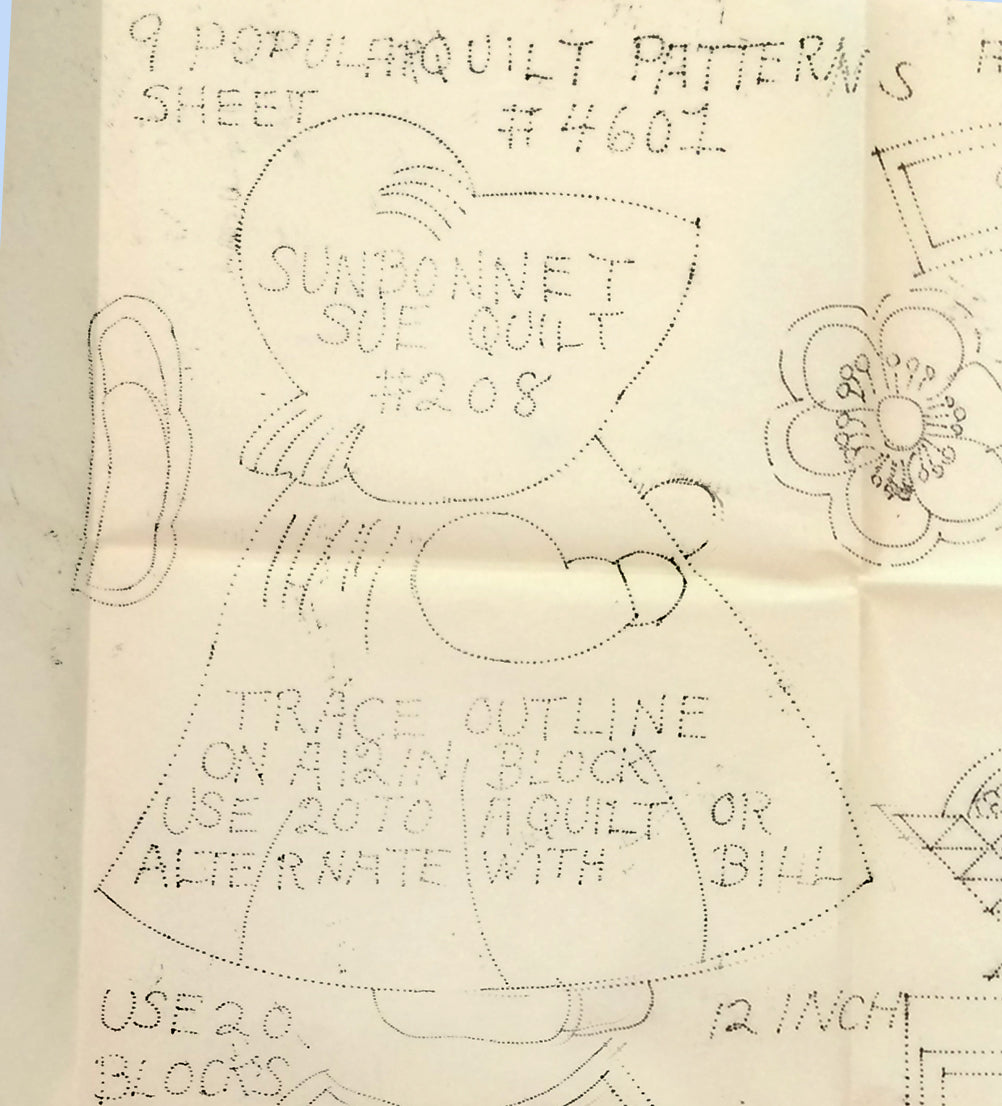 9 POPULAR QUILT PATTERNS
SHEET #4601
SUNBONNET
SUE QUILT
#208
TRACE OUTLINE
ON A 12 IN BLOCK
USE 20 TO A QUILT OR
ALTERNATE WITH BILL
USE 20
BLOCKS
12 INCH